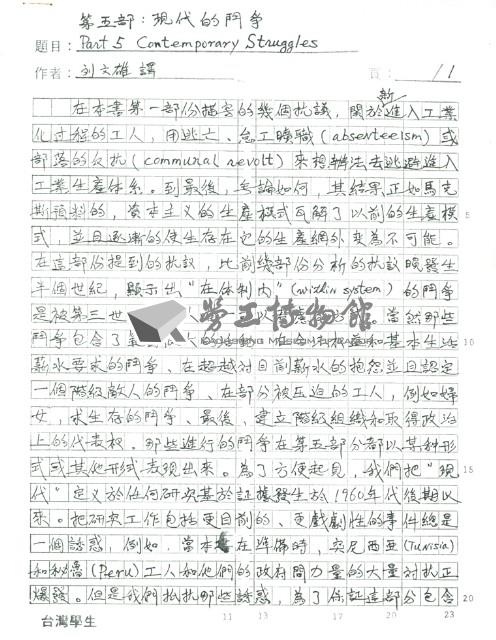 第五部：現代的鬥爭
題目：Part 5 Contemporary Struggles
作者：刘文雄 譯 頁： /1
新
在本書第一部份描寫的幾個抗議，関於進入工業
化过程的工人，用逃亡、怠工曠職(absenteeism)或
部落的反抗(communal revolt)來想辦法去逃避進入
工業生產体系。到最後，無論如何，其結果正如馬克
斯預料的，資本主义的生產模式瓦解了以前的生產模 5
式，並且逐漸的使生存在它的生產網外变為不可能。
在這部份提到的抗議，比前幾部份分析的抗議晚發生
半個世紀，顯示出"在体制内"(within system)的鬥爭
是被第三世 人 以 應 當然那些
鬥爭包含了 和其本生活 10
勞工博物館
KAOHSIUNG MUSEUM OF LABOR
薪水要求的鬥爭、在超越对目前薪水的抱怨並且認定
一個階級敵人的鬥爭、在部分被压迫的工人，例如婦
女，求生存的鬥爭、最後，建立階級組織和取得政治
上的代表权。那些進行的鬥爭在第五部分都以某种形
式或其他形式表現出來。為了方便起見，我們把"現 15
代"定义於任何研究基於証據發生於1960年代後期以
來。把研究工作包括更目前的、更戲劇性的事件總是
一個誘惑，例如，當本 在準備時，突尼西亞(Tunisia)
和秘魯(Peru)工人和他們的政府間力量的大量对抗正
爆發。但是我們抵抗那些誘惑，為了保証這部分包含 20
台灣學生 11 13 23